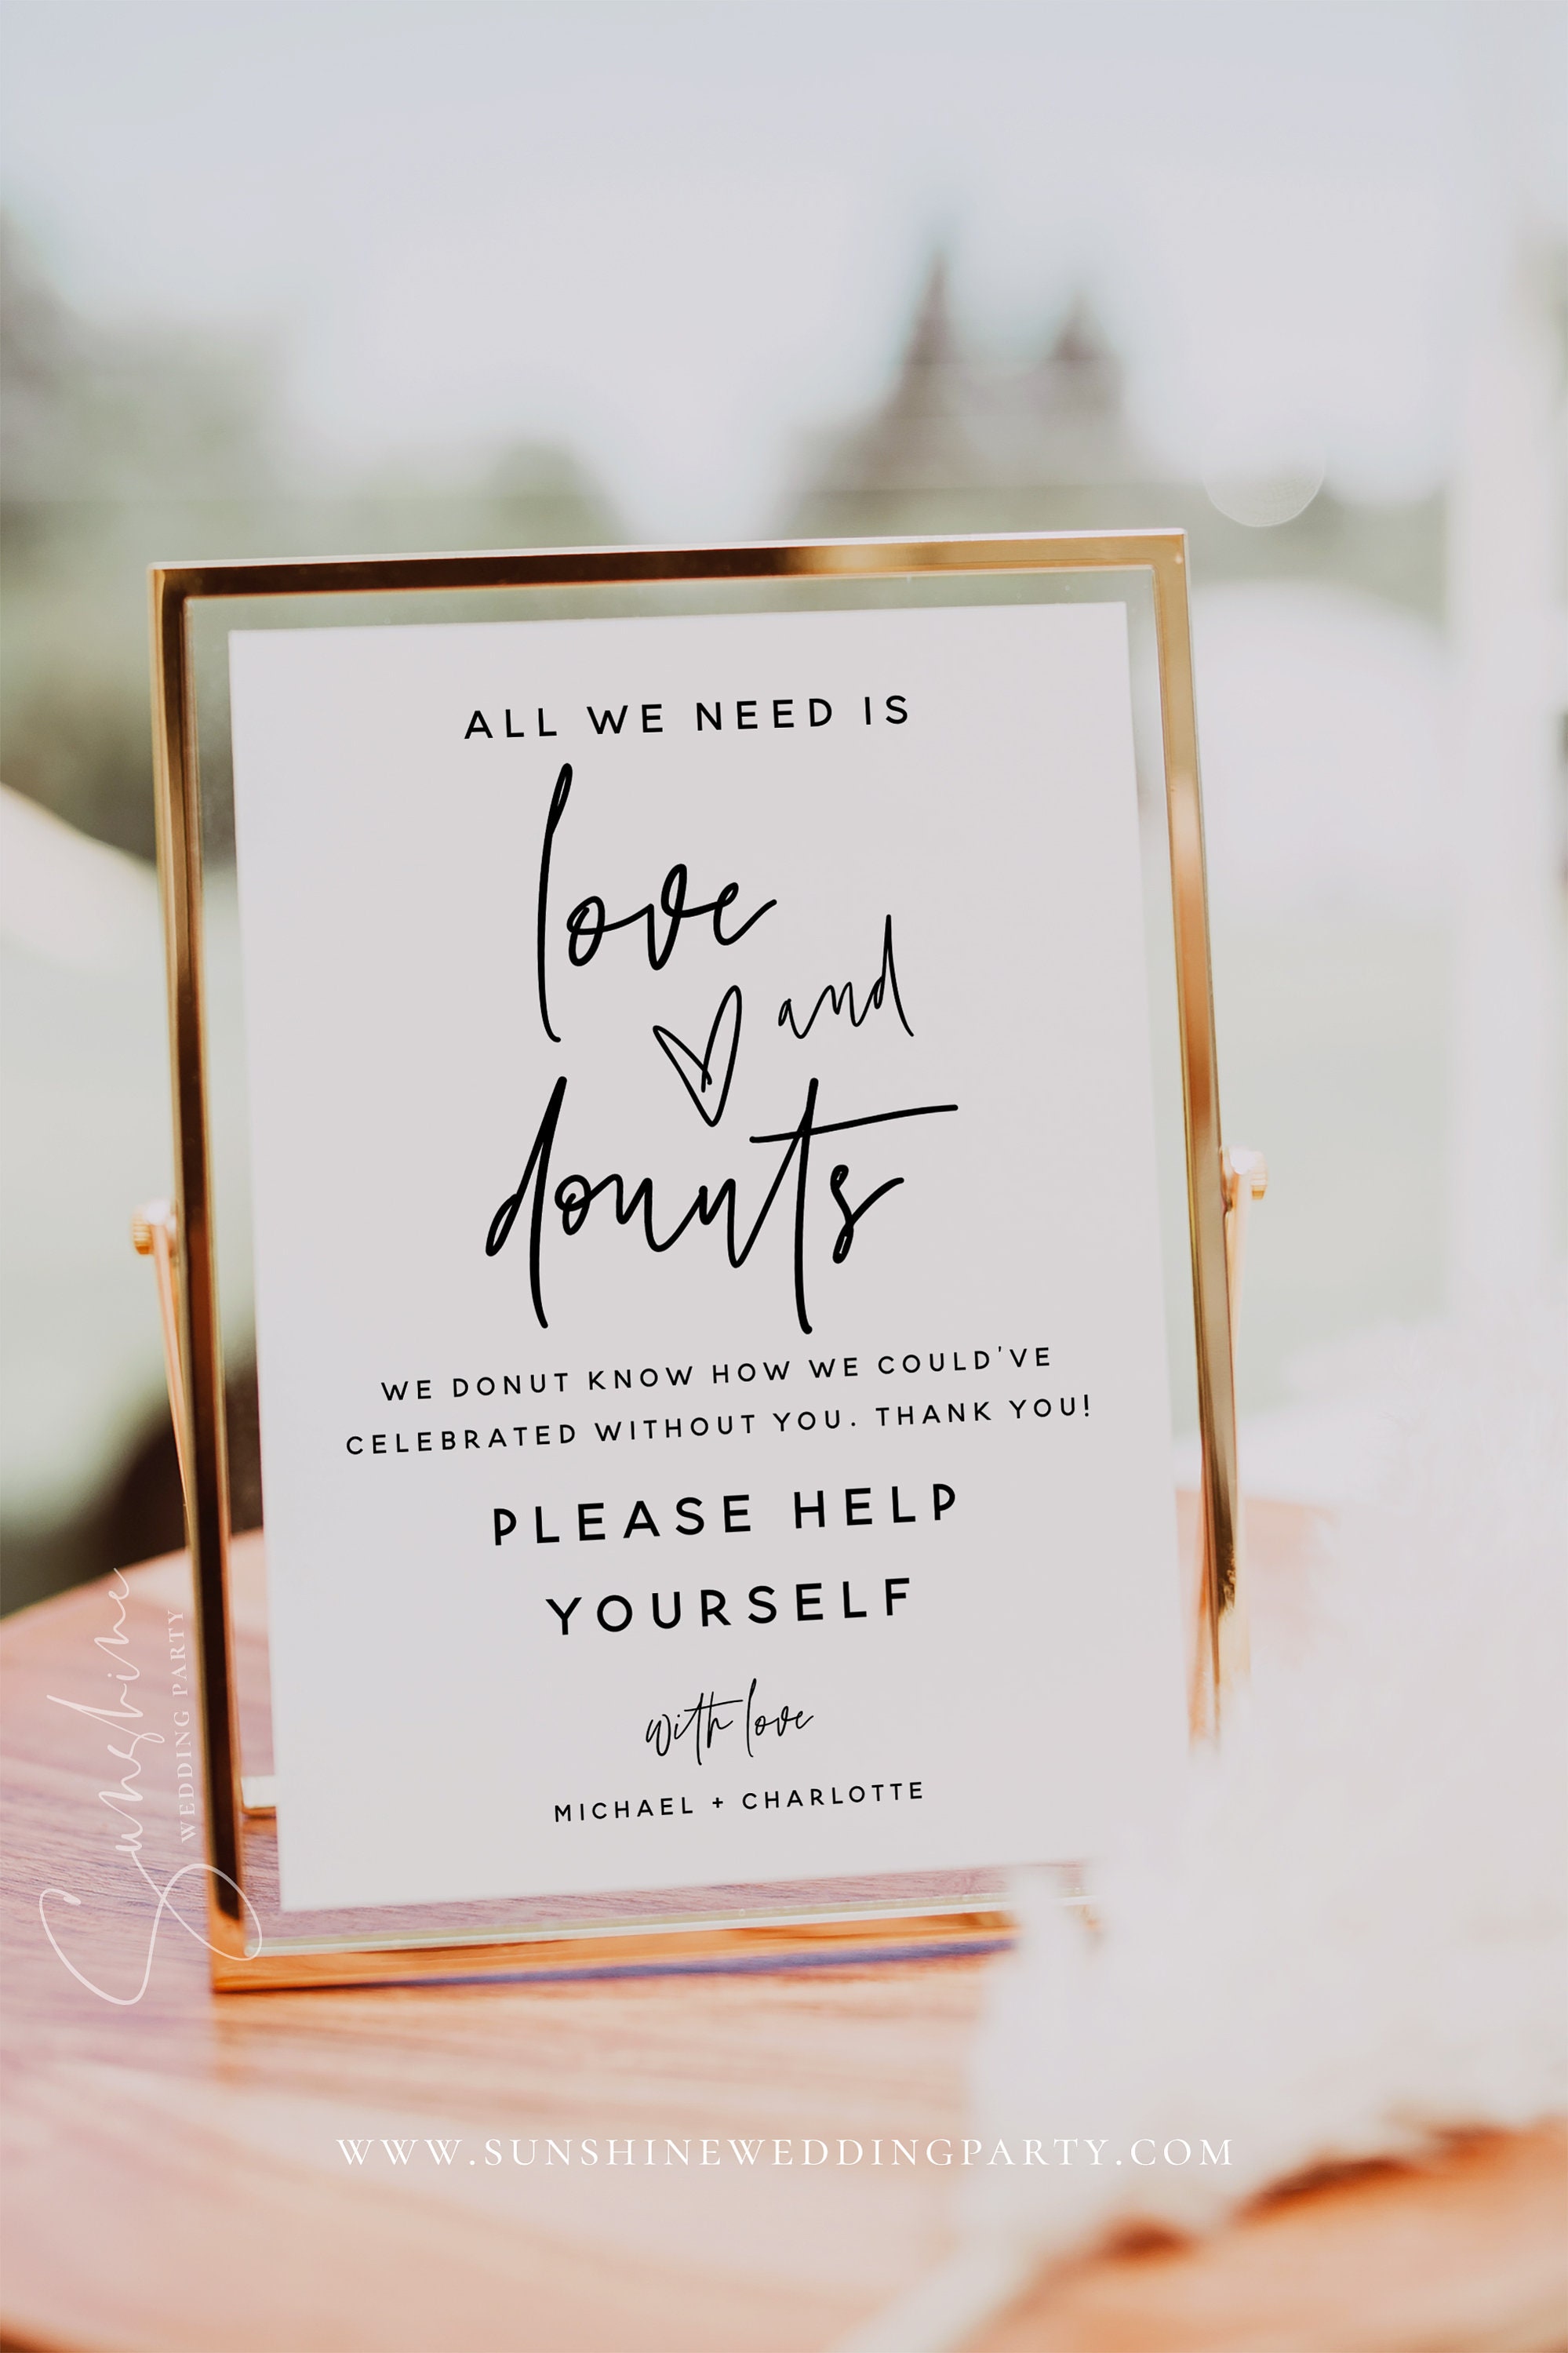 ALL WE NEED IS
love
and
donuts
WE DONUT KNOW HOW WE COULD'VE
CELEBRATED WITHOUT YOU. THANK YOU!
PLEASE HELP
YOURSELF
with love
MICHAEL + CHARLOTTE
Sunshine
WEDDING PARTY
WWW.SUNSHINEWEDDINGPARTY.COM